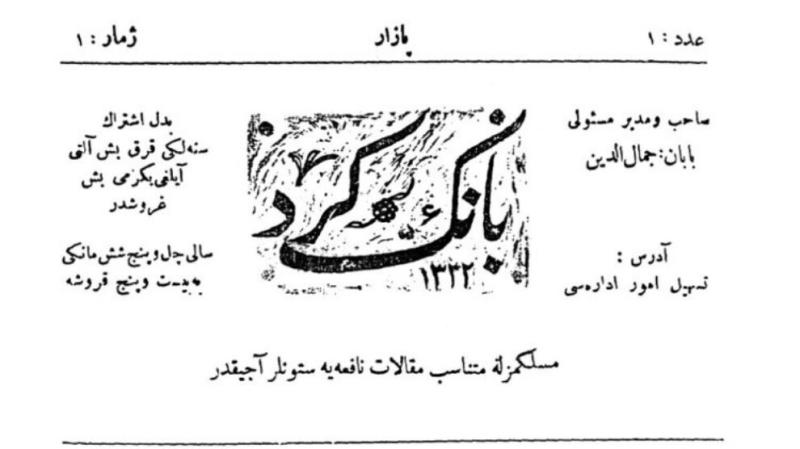 عدد : ١
بازار
ژمار : ١
صاحب و مدیر مسئولی
بابان : جمال‌الدین
آدرس :
تسهیل امور اداره‌سی
بانگ کرد
١٣٣٢
بدل اشتراك
سنه‌لکی قرق بش آلتی
آیلغی یکرمی بش
غروشدر
سالی چل و پنج شش مانگی
بیست و پنج قروشه
مسلکمزله متناسب مقالات نافعه‌یه ستونلر آچیقدر